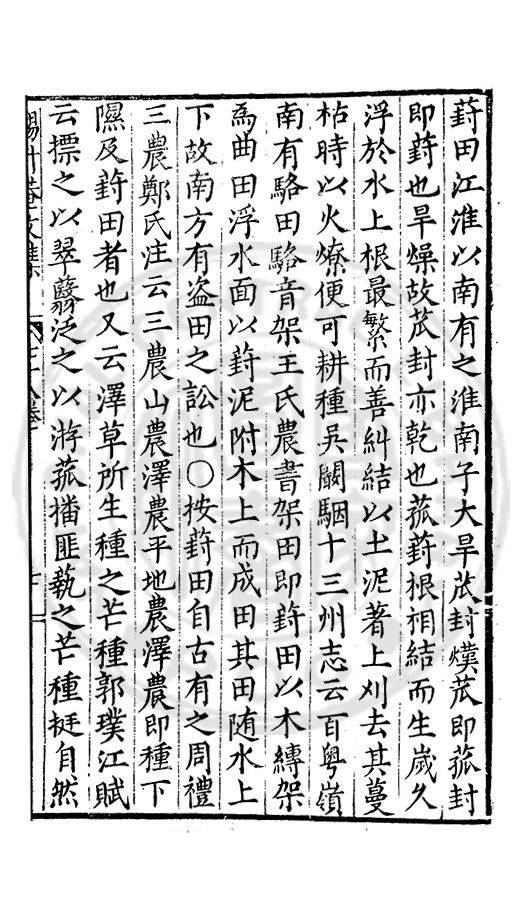 葑田江淮以南有之淮南子大旱苽封熯苽即菰封
即葑也旱燥故苽封亦乾也菰葑根相結而生歲久
浮於水上根最繁而善糾結以土泥著上刈去其蔓
枯時以火燎便可耕種吳闞駰十三州志云百粤嶺
南有駱田駱音架王氏農書架田即葑田以木縳架
爲曲田浮水面以葑泥附木上而成田其田随水上
下故南方有盗田之訟也〇按葑田自古有之周禮
三農鄭氏注云三農山農澤農平地農澤農即種下
隰及葑田者也又云澤草所生種之芒種郭璞江賦
云摽之以翠蘙泛之以游菰播匪蓺之芒種挺自然
升菴文集